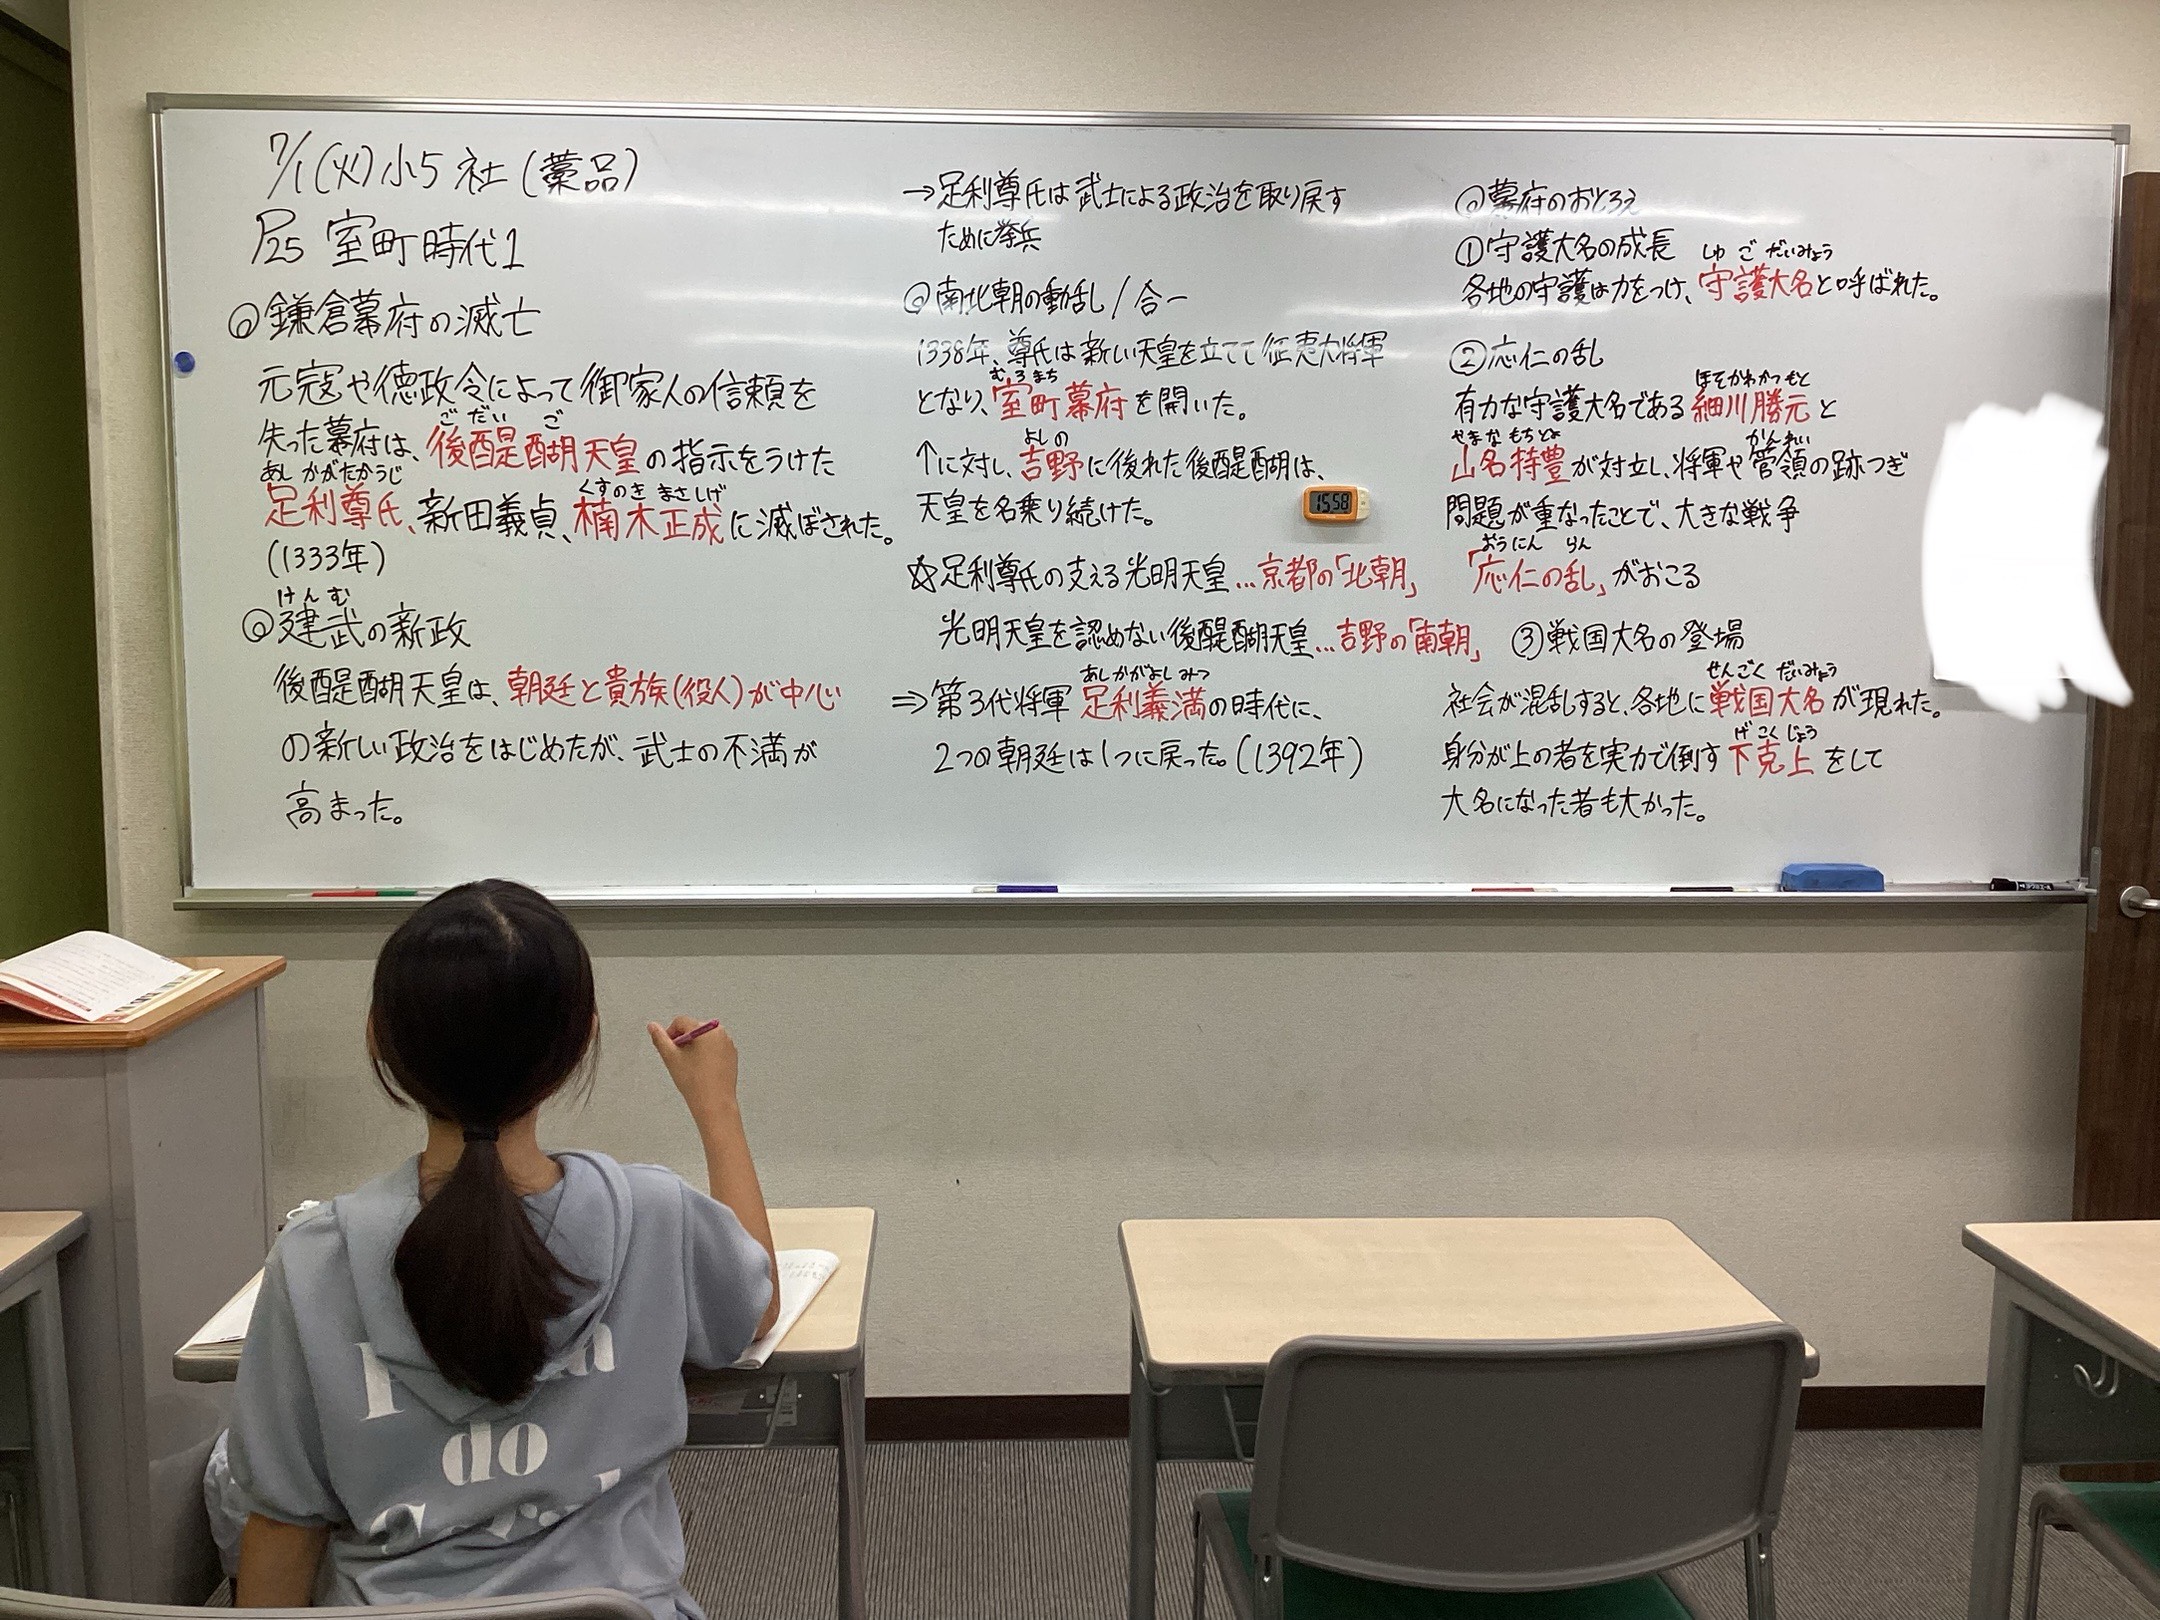 7/1(火)小5 社(薬品)
P25 室町時代1
◎鎌倉幕府の滅亡
元寇や徳政令によって御家人の信頼を
ごだいご
失った幕府は、後醍醐天皇の指示をうけた
あしかがたかうじ くすのきまさしげ
足利尊氏、新田義貞、楠木正成に滅ぼされた。
(1333年)
けんむ
◎建武の新政
後醍醐天皇は、朝廷と貴族(役人)が中心
の新しい政治をはじめたが、武士の不満が
高まった。
→足利尊氏は武士による政治を取り戻す
ために挙兵
◎南北朝の動乱/合一
1338年、尊氏は新しい天皇を立てて征夷大将軍
むろまち
となり、室町幕府を開いた。
よしの
↑に対し、吉野に後れた後醍醐は、
天皇を名乗り続けた。
15:58
☆足利尊氏の支える光明天皇…京都の「北朝」
光明天皇を認めない後醍醐天皇…吉野の「南朝」
あしかがよしみつ
⇒第3代将軍 足利義満の時代に、
2つの朝廷は1つに戻った。(1392年)
◎幕府のおとろえ
①守護大名の成長 しゅごだいみょう
各地の守護は力をつけ、守護大名と呼ばれた。
②応仁の乱
ほそかわかつもと
有力な守護大名である細川勝元と
やまなもちとよ かんれい
山名持豊が対立し、将軍や管領の跡つぎ
問題が重なったことで、大きな戦争
おうにん らん
「応仁の乱」がおこる
③戦国大名の登場
せんごくだいみょう
社会が混乱すると、各地に戦国大名が現れた。
げこくじょう
身分が上の者を実力で倒す下克上をして
大名になった者も大かった。
do